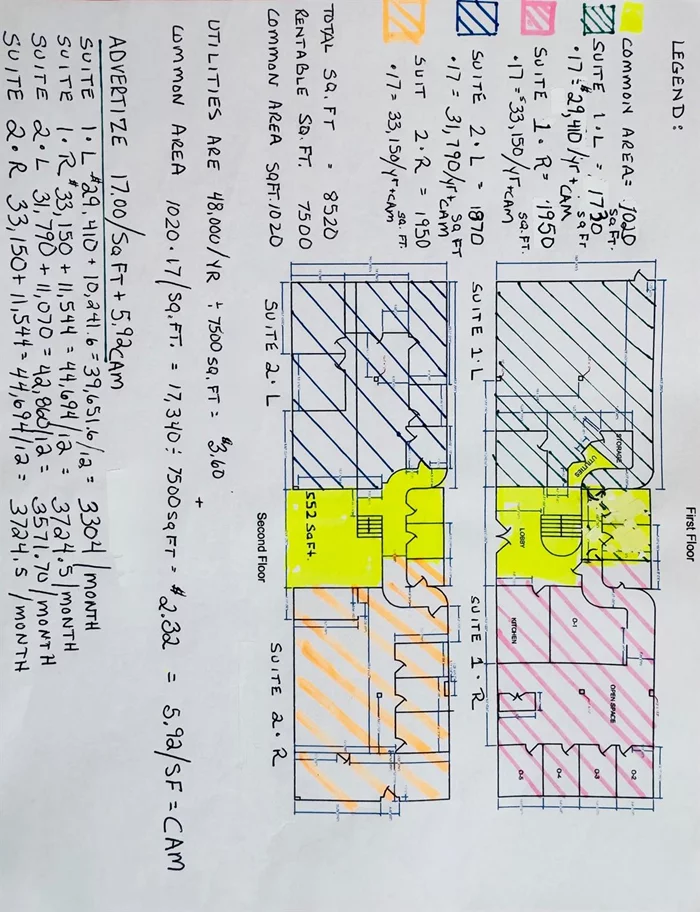 LEGEND:
COMMON AREA = 1020 SQ FT.
SUITE 1·L = 1730 SQ FT
·17 = $29,410/yr + CAM
SUITE 1·R = 1950 SQ.FT.
·17 = $33,150/yr+CAM
SUITE 2·L = 1870 SQ FT
·17 = 31,790/yr + CAM
SUIT 2·R = 1950 SQ. FT.
·17 = 33,150/yr+CAM
TOTAL SQ.FT = 8520
RENTABLE SQ.FT. 7500
COMMON AREA SQFT. 1020
First Floor
STORAGE
UTILITIES
LOBBY
KITCHEN
O-1
OPEN SPACE
O-2
O-3
O-4
O-5
SUITE 1·L
SUITE 1·R
552 SQ FT.
Second Floor
SUITE 2·L
SUITE 2·R
UTILITIES ARE 48,000/YR ÷ 7500 SQ.FT = $3.60
+
COMMON AREA 1020·17/SQ.FT. = 17,340 ÷ 7500 SQ FT = $2.32 = 5.92/SF = CAM
ADVERTIZE 17.00/SQ FT + 5.92 CAM
SUITE 1·L $29,410 + 10,241.6 = 39,651.6/12 = 3304/MONTH
SUITE 1·R $33,150 + 11,544 = 44,694/12 = 3724.5/MONTH
SUITE 2·L 31,790 + 11,070 = 42,860/12 = 3571.70/MONTH
SUITE 2·R 33,150 + 11,544 = 44,694/12 = 3724.5/MONTH